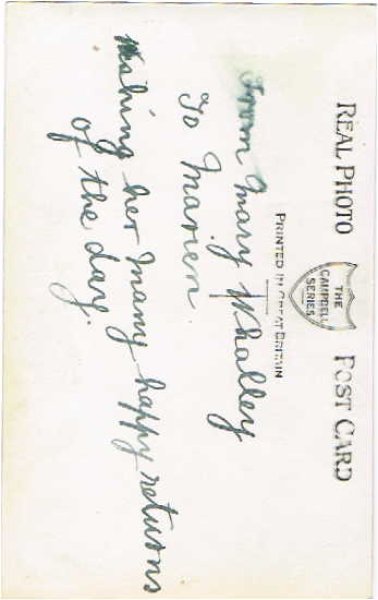 REAL PHOTO POST CARD
THE
CAMPBELL
SERIES
PRINTED IN GREAT BRITAIN
From Mary Whalley
To Marien
Wishing her many happy returns
of the day.